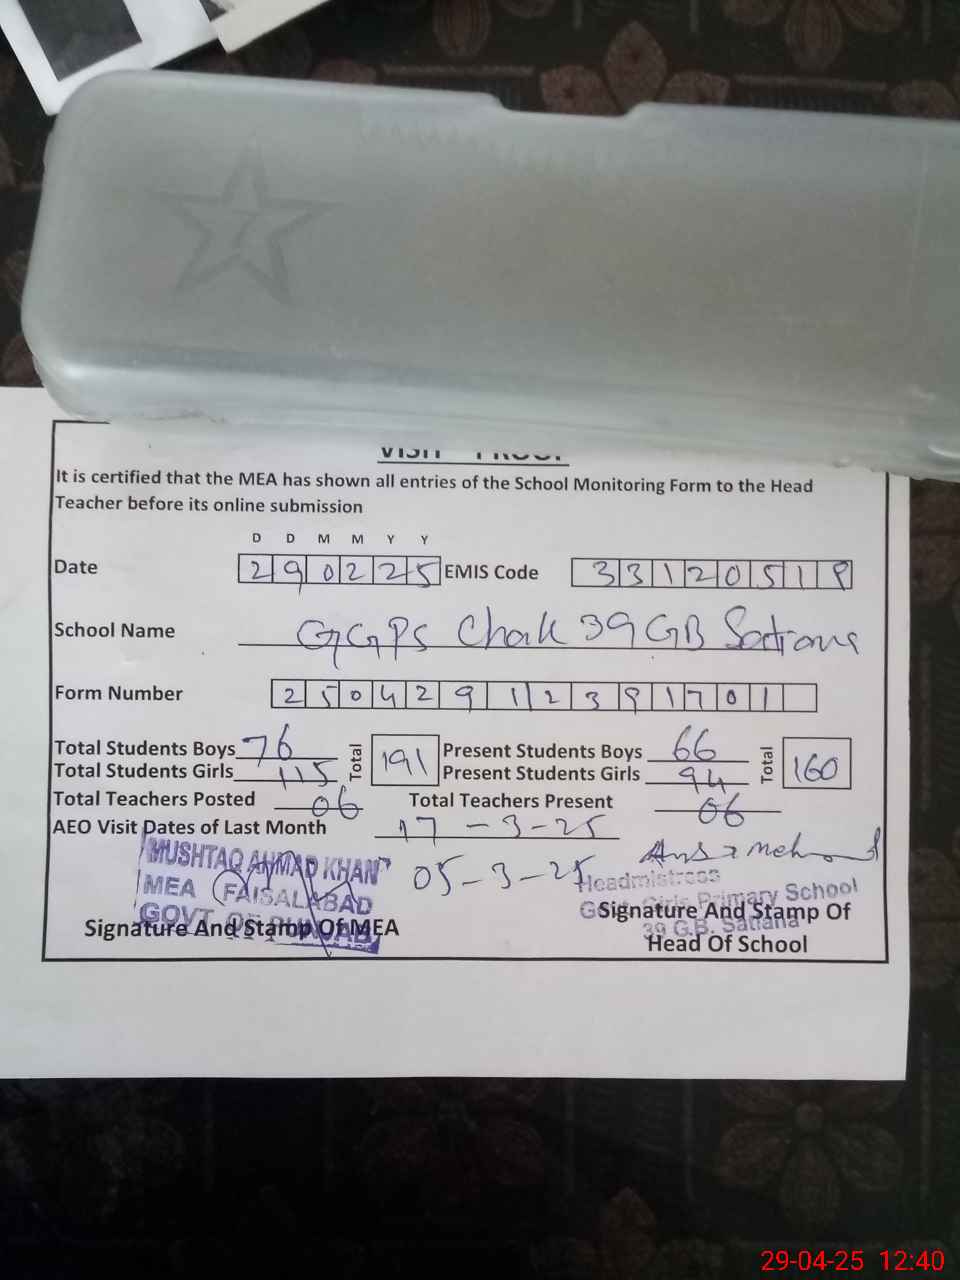 VISIT PROOF
It is certified that the MEA has shown all entries of the School Monitoring Form to the Head
Teacher before its online submission
D D M M Y Y
Date 290225 EMIS Code 33120518
School Name GGPS Chak 39 GB Satiana
Form Number 25042912391701
Total Students Boys 76 Total 191 Present Students Boys 66 Total 160
Total Students Girls 115 Present Students Girls 94
Total Teachers Posted 06 Total Teachers Present 06
AEO Visit Dates of Last Month 17-3-25
05-3-25
MUSHTAQ AHMAD KHAN
MEA FAISALABAD
GOVT. OF PUNJAB
Signature And Stamp Of MEA
Headmistress
Govt. Girls Primary School
39 G.B. Satiana
Signature And Stamp Of
Head Of School
29-04-25 12:40